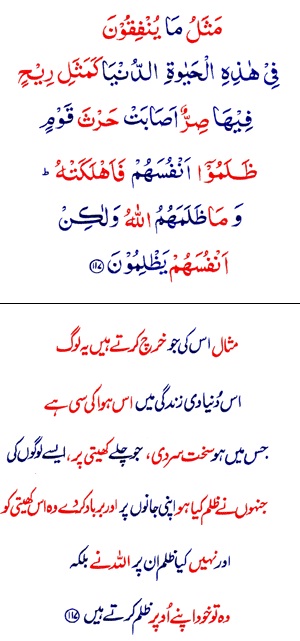 مَثَلُ مَا يُنْفِقُوْنَ
فِىْ هٰذِهِ الْحَيٰوةِ الدُّنْيَا كَمَثَلِ رِيْحٍ
فِيْهَا صِرٌّ اَصَابَتْ حَرْثَ قَوْمٍ
ظَلَمُوْۤا اَنْفُسَهُمْ فَاَهْلَكَتْهُ ؕ
وَ مَا ظَلَمَهُمُ اللّٰهُ وَلٰكِنْ
اَنْفُسَهُمْ يَظْلِمُوْنَ ﴿۱۱۷﴾
مثال اس کی جو خرچ کرتے ہیں یہ لوگ
اس دُنیاوی زندگی میں اس ہوا کی سی ہے
جس میں ہو سخت سردی، جو چلے کھیتی پر، ایسے لوگوں کی
جنہوں نے ظلم کیا ہو اپنی جانوں پر اور برباد کردے وہ اس کھیتی کو
اور نہیں کیا ظلم ان پر اللہ نے بلکہ
وہ تو خود اپنے اُوپر ظلم کرتے ہیں ﴿۱۱۷﴾